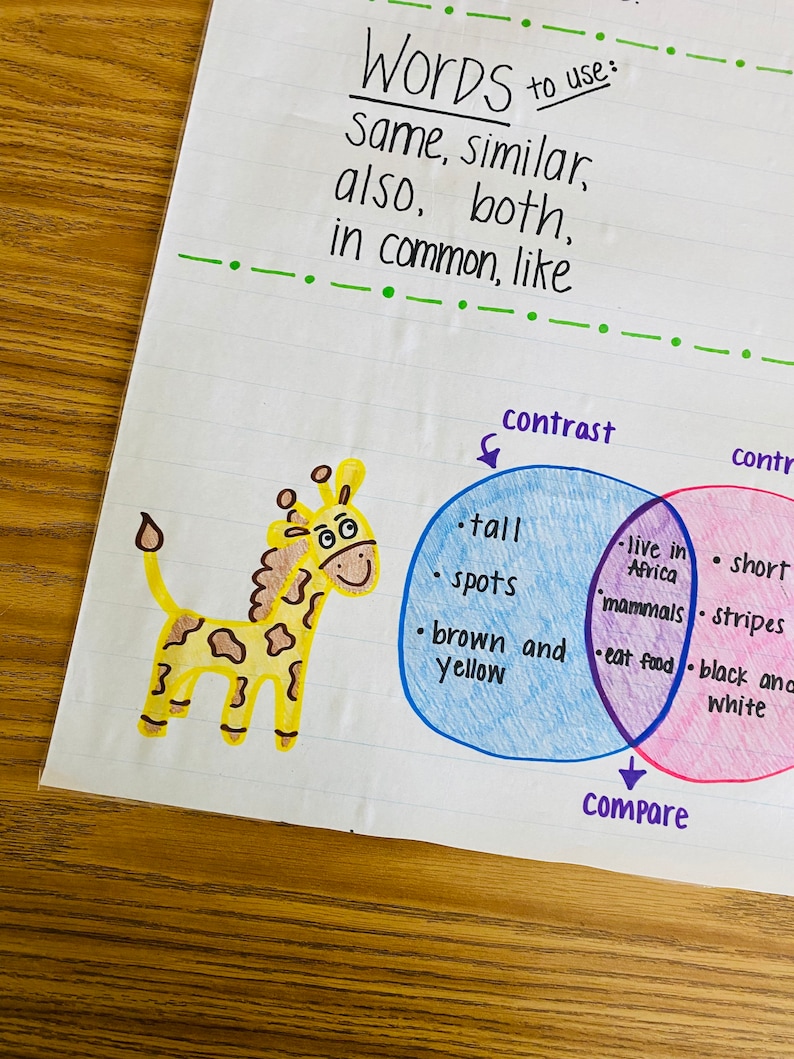 Words to use:
same, similar,
also, both,
in common, like
contrast
• tall
• spots
• brown and
yellow
• live in
Africa
• mammals
• eat food
• short
• stripes
• black and
white
compare